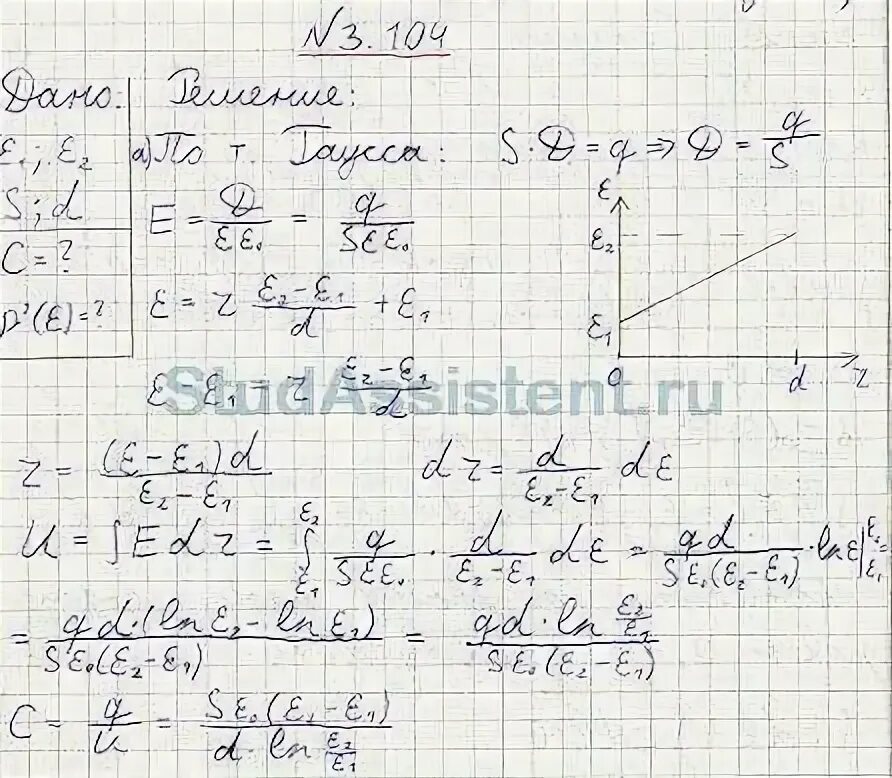 N 3.104
Дано: Решение:
ε₁; ε₂ а) По т. Гаусса: S·D = q ⇒ D = q/S
S; d E = D/(εε₀) = q/(Sεε₀)
C = ?
ρ'(ε) = ? ε = z (ε₂−ε₁)/d + ε₁
ε
ε₂
ε₁
0 d z
ε − ε₁ = z (ε₂−ε₁)/d
StudAssistent.ru
z = (ε−ε₁)d/(ε₂−ε₁) dz = d/(ε₂−ε₁) dε
U = ∫E dz = ∫_{ε₁}^{ε₂} q/(Sεε₀) · d/(ε₂−ε₁) dε = qd/(Sε₀(ε₂−ε₁)) · ln ε |_{ε₁}^{ε₂} =
= qd·(ln ε₂ − ln ε₁)/(Sε₀(ε₂−ε₁)) = qd·ln(ε₂/ε₁)/(Sε₀(ε₂−ε₁))
C = q/U = Sε₀(ε₂−ε₁)/(d·ln(ε₂/ε₁))